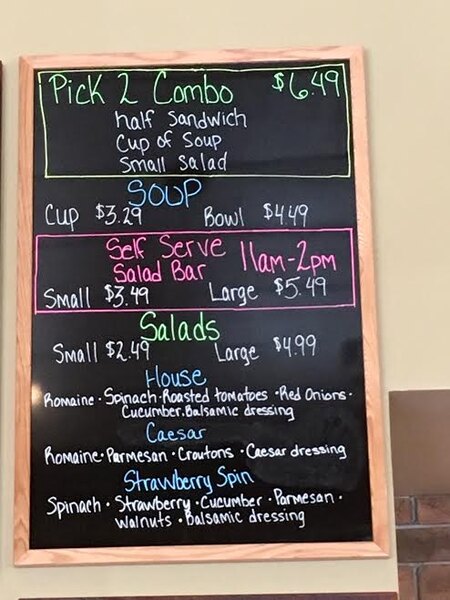 Pick 2 Combo $6.49
half Sandwich
Cup of Soup
Small Salad
SOUP
Cup $3.29 Bowl $4.49
Self Serve
Salad Bar 11am-2pm
Small $3.49 Large $5.49
Salads
Small $2.49 Large $4.99
House
Romaine · Spinach · Roasted tomatoes · Red Onions ·
Cucumber · Balsamic dressing
Caesar
Romaine · Parmesan · Croutons · Caesar dressing
Strawberry Spin
Spinach · Strawberry · Cucumber · Parmesan ·
Walnuts · Balsamic dressing